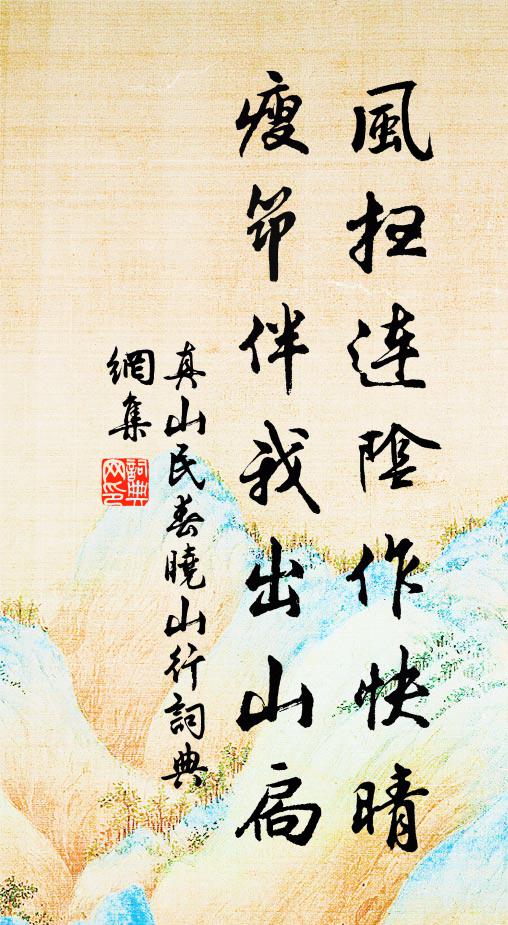 風掃連陰作快晴
瘦筇伴我出山扃
真山民春曉山行詞典
網集
詞典
網印